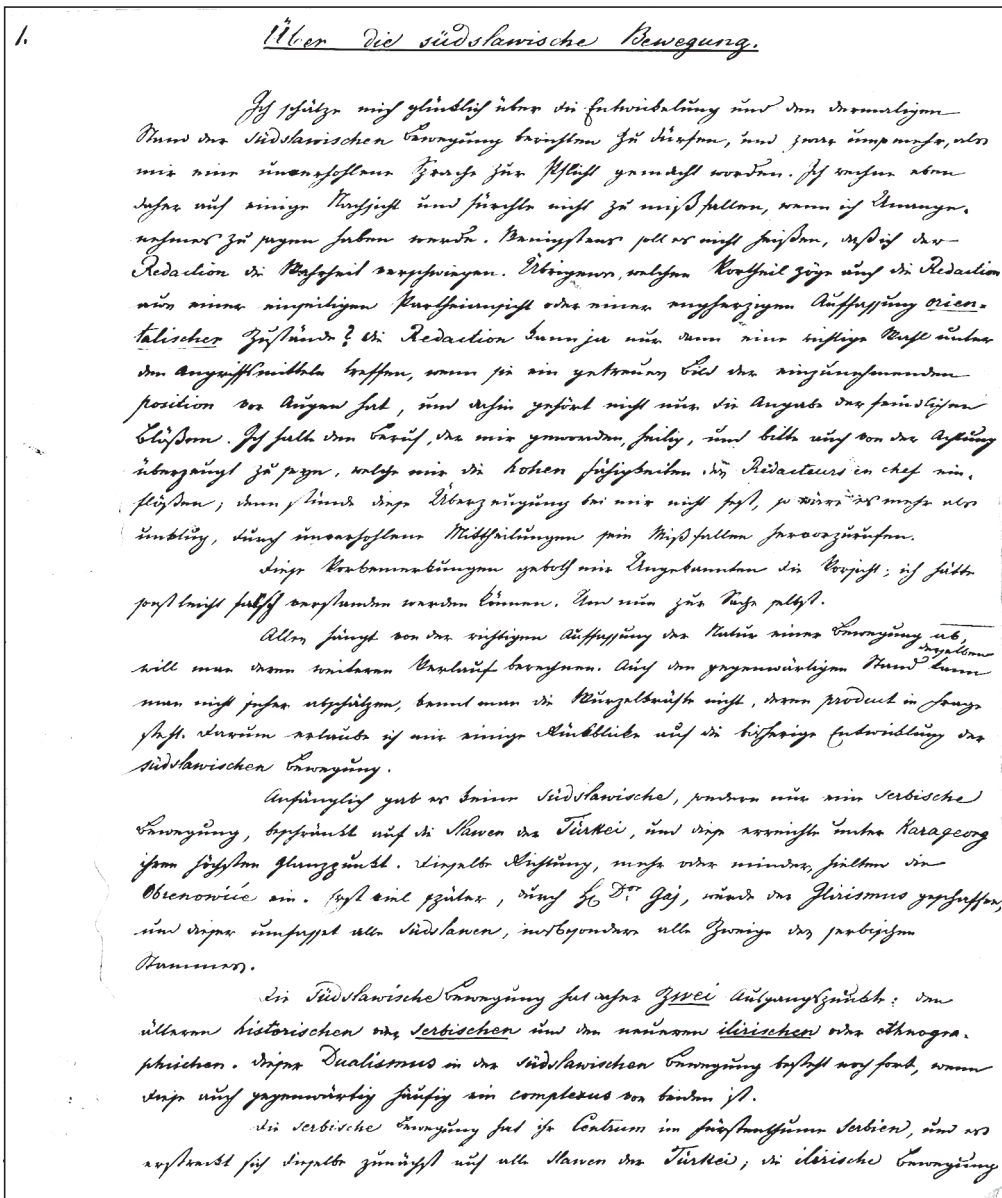 1.
Über die südslawische Bewegung.
Ich schätze mich glücklich über die Entwickelung und den dermaligen
Stand der südslawischen Bewegung berichten zu dürfen, und zwar umsomehr, als
mir eine unverhohlene Sprache zur Pflicht gemacht worden. Ich rechne eben
daher auf einige Nachsicht und fürchte nicht zu mißfallen, wenn ich Unange-
nehmes zu sagen haben werde. Wenigstens soll es nicht heißen, daß ich der
Redaction die Wahrheit verschwiegen. Übrigens, welchen Vortheil zöge auch die Redaction
aus einer einseitigen Partheiansicht oder einer engherzigen Auffassung orien-
talischer Zustände? die Redaction kann ja nur dann eine richtige Wahl unter
den Angriffsmitteln treffen, wenn sie ein getreues Bild der einzunehmenden
position vor Augen hat, und dahin gehört nicht nur die Angabe der feindlichen
Blößen. Ich halte den Beruf, der mir geworden, heilig, und bitte auch von der Achtung
überzeugt zu seyn, welche mir die hohen Fähigkeiten des Redacteurs en chef ein-
flößen; denn stünde diese Überzeugung bei mir nicht fest, so wäre es mehr als
unklug, durch unverhohlene Mittheilungen sein Mißfallen hervorzurufen.
Diese Vorbemerkungen geboth mir Ungekannten die Vorsicht; ich hätte
sonst leicht falsch verstanden werden können. Und nun zur Sache selbst.
Alles hängt von der richtigen Auffassung der Natur einer Bewegung ab,
will man deren weiteren Verlauf berechnen. Auch den gegenwärtigen Stand derselben kann
man nicht sicher abschätzen, kennt man die Wurzelkräfte nicht, deren product in Frage
steht. Darum erlaube ich mir einige Rückblicke auf die bisherige Entwicklung der
südslawischen Bewegung.
Anfänglich gab es keine südslawische, sondern nur eine serbische
Bewegung, beschränkt auf die Slawen der Türkei, und diese erreichte unter Karageorg
ihren höchsten Glanzpunkt. Dieselbe Richtung, mehr oder minder, hielten die
Obrenowiće ein. Erst viel später, durch H. Dor Gaj, wurde der Ilirismus geschaffen,
und dieser umfasset alle Südslawen, insbesondere alle Zweige des serbischen
Stammes.
Die Südslawische Bewegung hat daher zwei Ausgangspunkte: den
älteren historischen oder serbischen und den neueren ilirischen oder ethnogra-
phischen. Dieser Dualismus in der südslawischen Bewegung besteht noch fort, wenn
diese auch gegenwärtig häufig ein complexus von beiden ist.
Die serbische Bewegung hat ihr Centrum im Fürstenthume Serbien, und es
erstreckt sich dieselbe zunächst auf alle Slawen der Türkei; die ilirische Bewegung